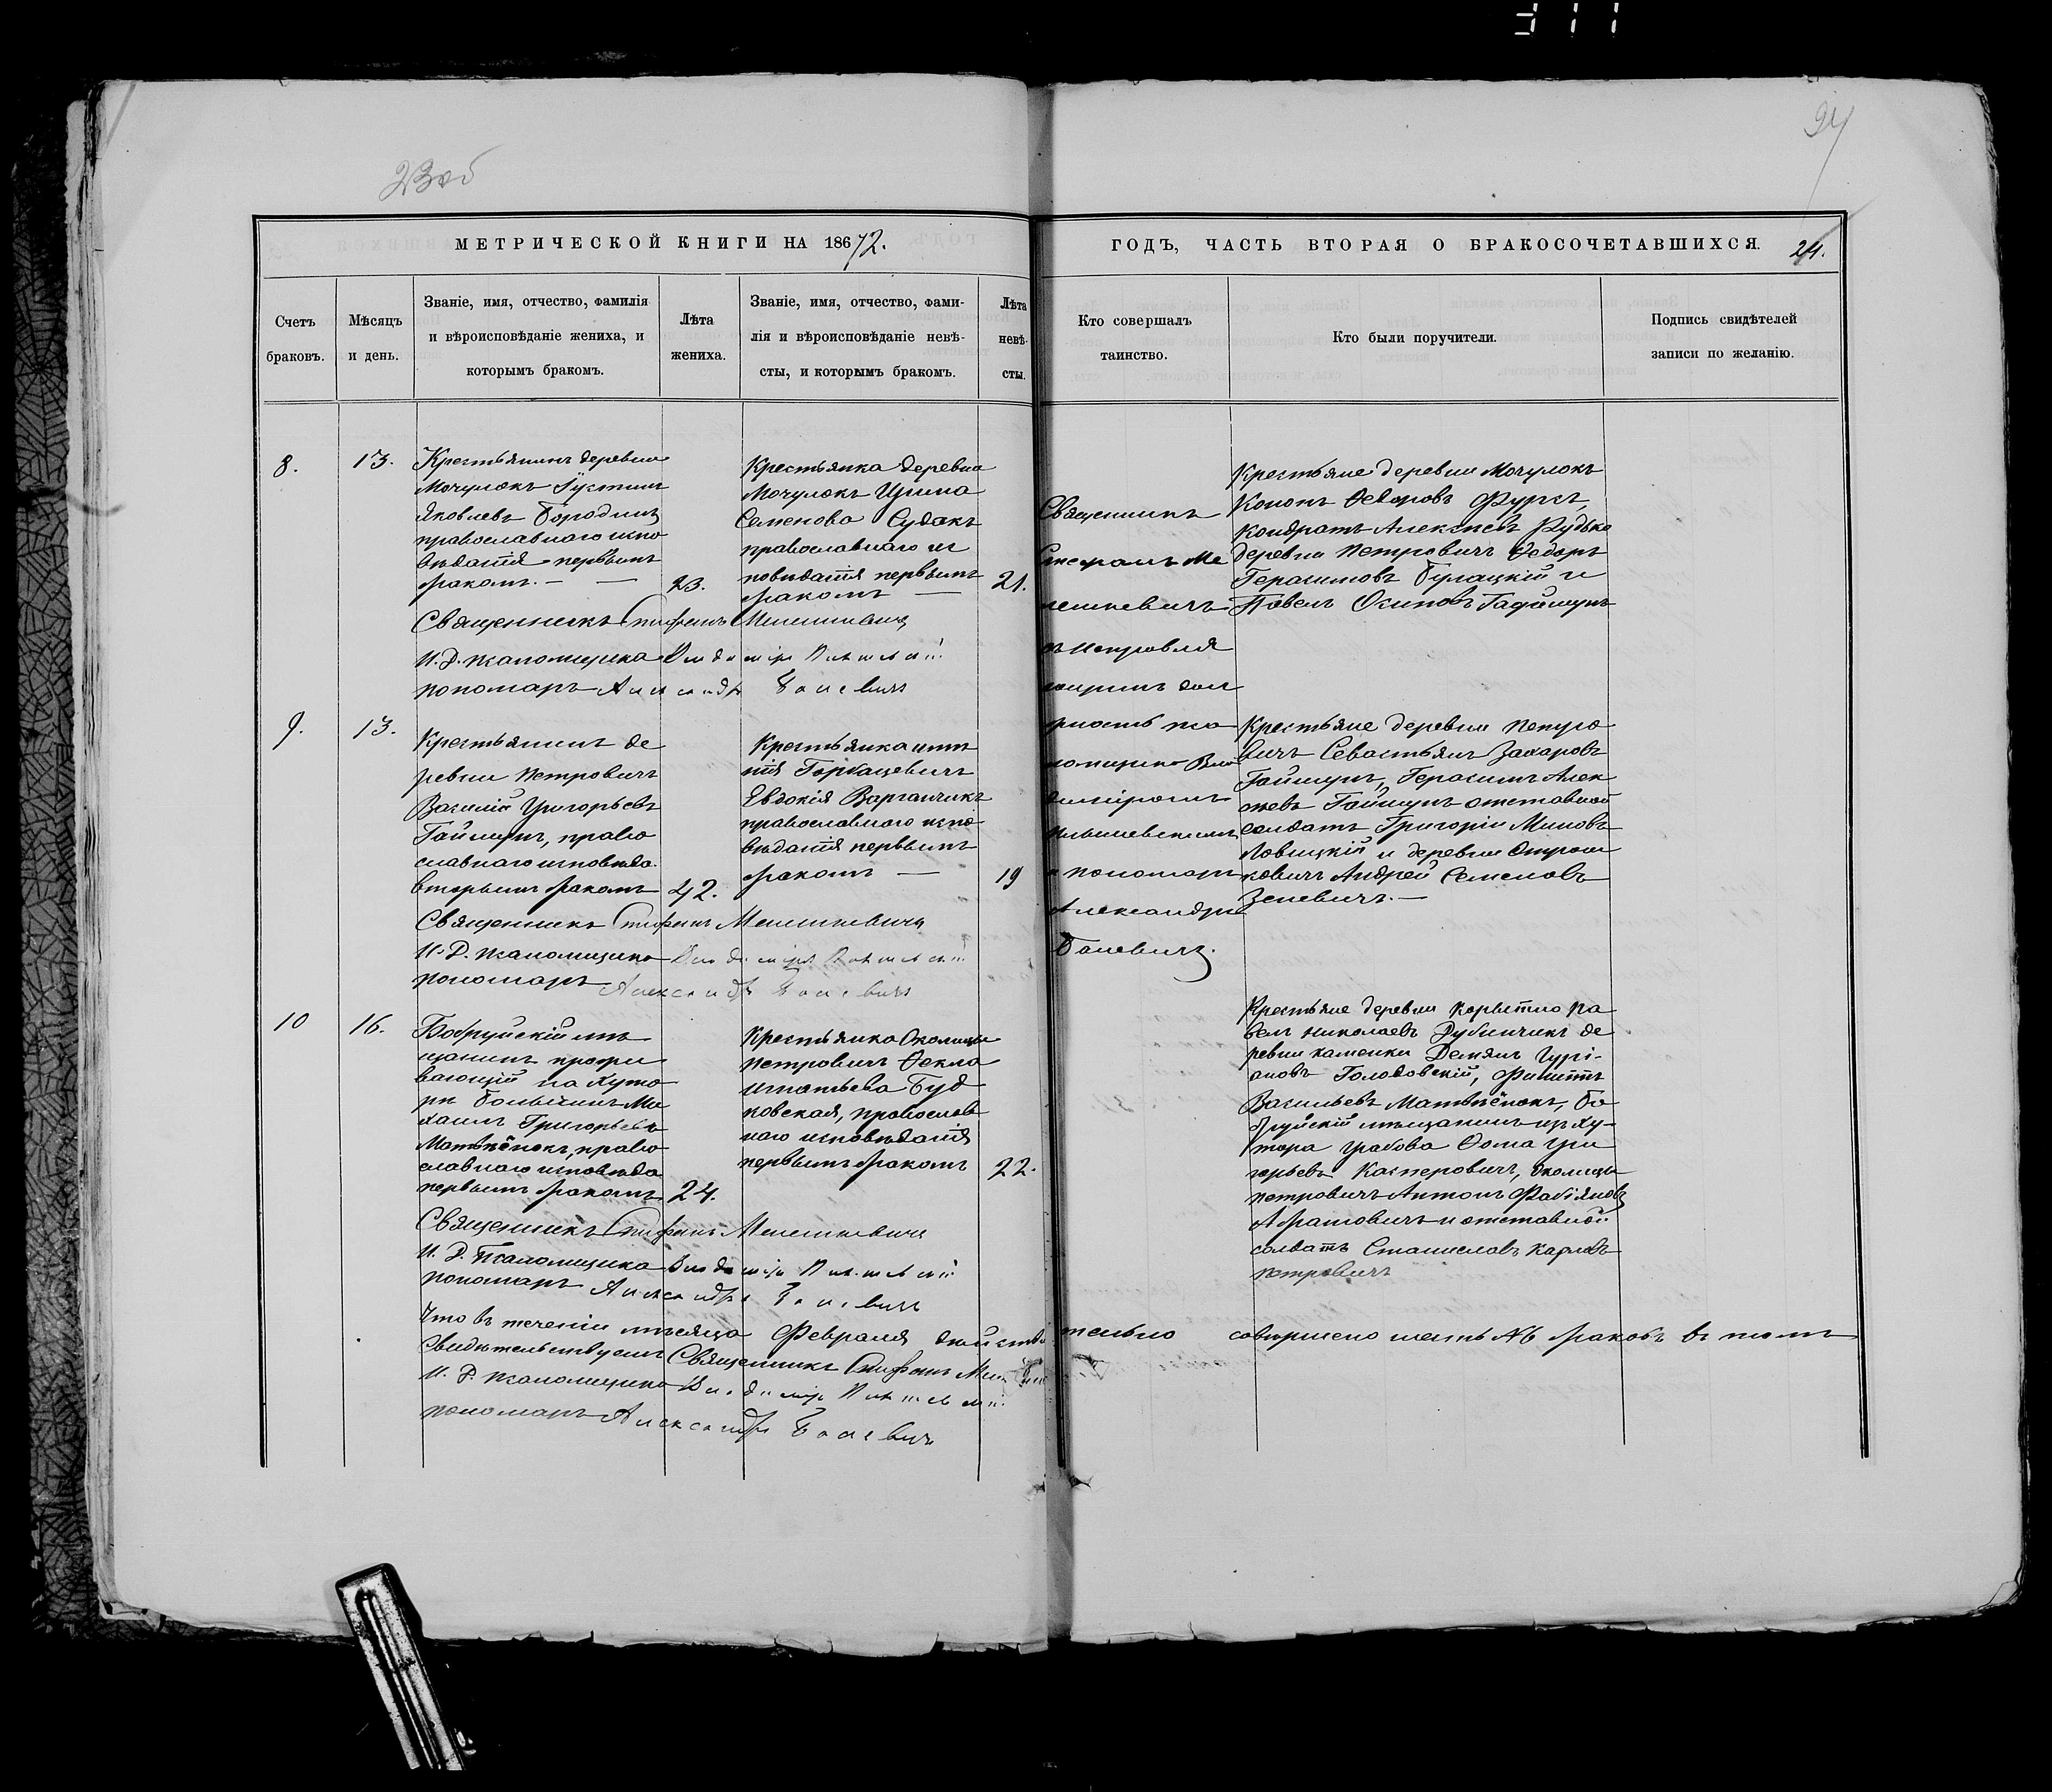 311
94
23об
МЕТРИЧЕСКОЙ КНИГИ НА 1872.
ГОДЪ, ЧАСТЬ ВТОРАЯ О БРАКОСОЧЕТАВШИХСЯ. 24.
Счетъ
браковъ.
Мѣсяцъ
и день.
Званіе, имя, отчество, фамилія
и вѣроисповѣданіе жениха, и
которымъ бракомъ.
Лѣта
жениха.
Званіе, имя, отчество, фами-
лія и вѣроисповѣданіе невѣ-
сты, и которымъ бракомъ.
Лѣта
невѣ-
сты.
Кто совершалъ
таинство.
Кто были поручители.
Подпись свидѣтелей
записи по желанію.
8.
13.
Крестьянинъ деревни
Мочулокъ Іустинъ
Яковлевъ Бородичъ
православнаго испо
вѣданія первымъ
бракомъ. —
23.
Крестьянка деревни
Мочулокъ Ирина
Семенова Судакъ
православнаго ис
повѣданія первымъ
бракомъ —
21.
Священникъ
Стефанъ Ме
лешкевичъ
съ исправля
ющимъ дол
жность пса
ломщика Вла
диміромъ
и пономарь
Александръ
Балевичъ.
Крестьяне деревни Мочулокъ
Кононъ Ѳедоровъ Фурсъ,
Кондратъ Алексѣевъ Рудько
деревни Петровичъ Ѳедоръ
Герасимовъ Булацкій и
Павелъ Осиповъ Гайшунъ
Священникъ Стефанъ Мелешкевичъ
И. Д. псаломщика Владиміръ
пономарь Александръ Балевичъ
9.
13.
Крестьянинъ де
ревни Петровичъ
Василій Григорьевъ
Гайшунъ, право
славнаго исповѣда.
вторымъ бракомъ
42.
Крестьянка имѣ
нія Горбацевичъ
Евдокія Варганчикъ
православнаго испо
вѣданія первымъ
бракомъ —
19
Крестьяне деревни Петро
вичъ Севастьянъ Захаровъ
Гайшунъ, Герасимъ Алек
сѣевъ Гайшунъ отставной
солдатъ Григорій Миновъ
Ловицкій и деревни
ковичъ Андрей Семеновъ
Зеневичъ. —
Священникъ Стефанъ Мелешкевичъ
И. Д. псаломщика Владиміръ
пономарь Александръ Балевичъ
10
16.
Бобруйскій мѣ
щанинъ прожи
вающій на хуто
рѣ Ми
хаилъ Григорьевъ
Матвѣёнокъ, право
славнаго исповѣда
первымъ бракомъ
24.
Крестьянка Околицы
Петровичъ Ѳекла
Игнатьева Буд
ковская, православ
наго исповѣданія
первымъ бракомъ
22.
Крестьяне деревни Корытно Па
велъ Николаевъ Дубинчикъ де
ревни Каменки Демянъ
Голодовскій, Филиппъ
Васильевъ Матвѣёнокъ, Бо
бруйскій мѣщанинъ изъ ху-
тора Грабова Ѳома Гри
горьевъ Касперовичъ, околицы
Петровичъ Антонъ Фабіяновъ
Абрамовичъ и отставной
солдатъ Станиславъ Карловъ
Петровичъ
Священникъ Стефанъ Мелешкевичъ
И. Д. Псаломщика Владиміръ
пономарь Александръ Балевичъ
Что въ теченіи мѣсяца Февраля дѣйстви тельно совершено шесть №6 браковъ въ томъ
Свидѣтельствуемъ Священникъ Стефанъ
И. Д. псаломщика Владиміръ
пономарь Александръ Балевичъ